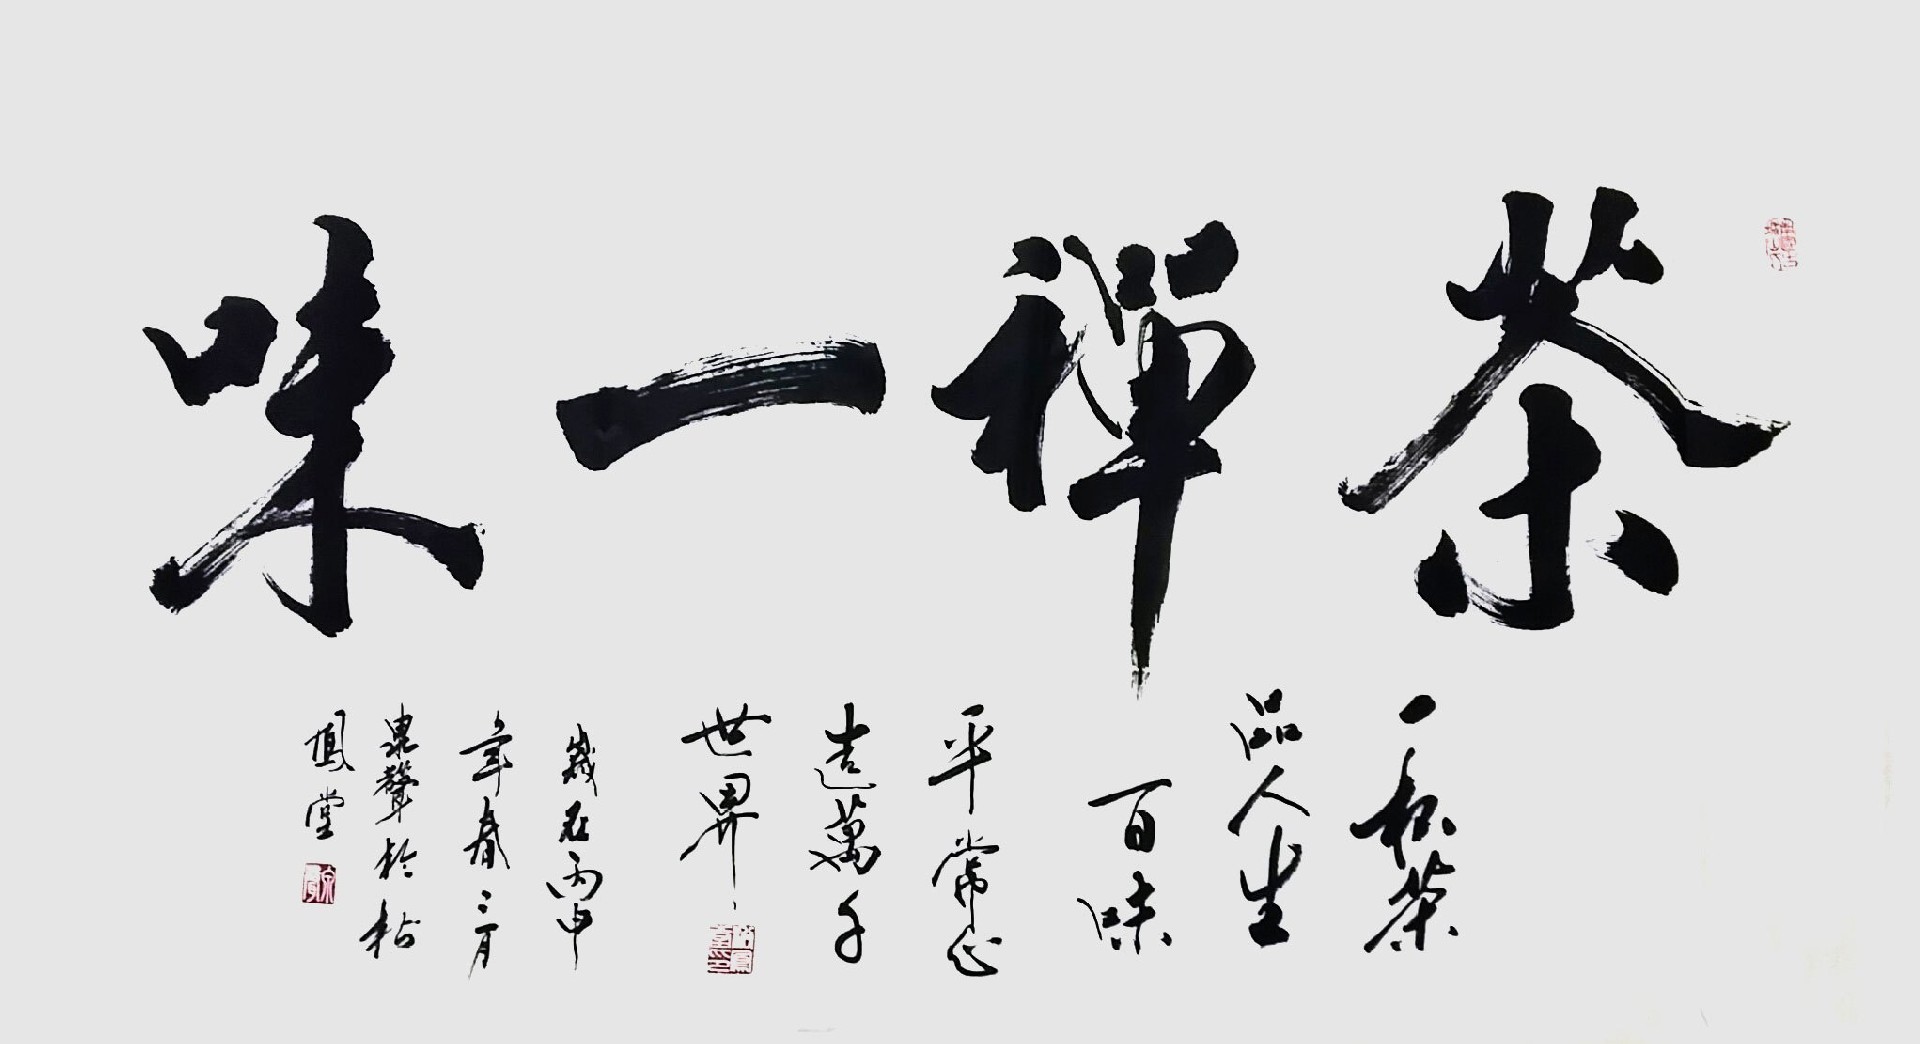 茶禪一味
一杯茶
品人生
百味
平常心
造萬千
世界
歲在丙申
年春三月
泉聲於
鳳堂